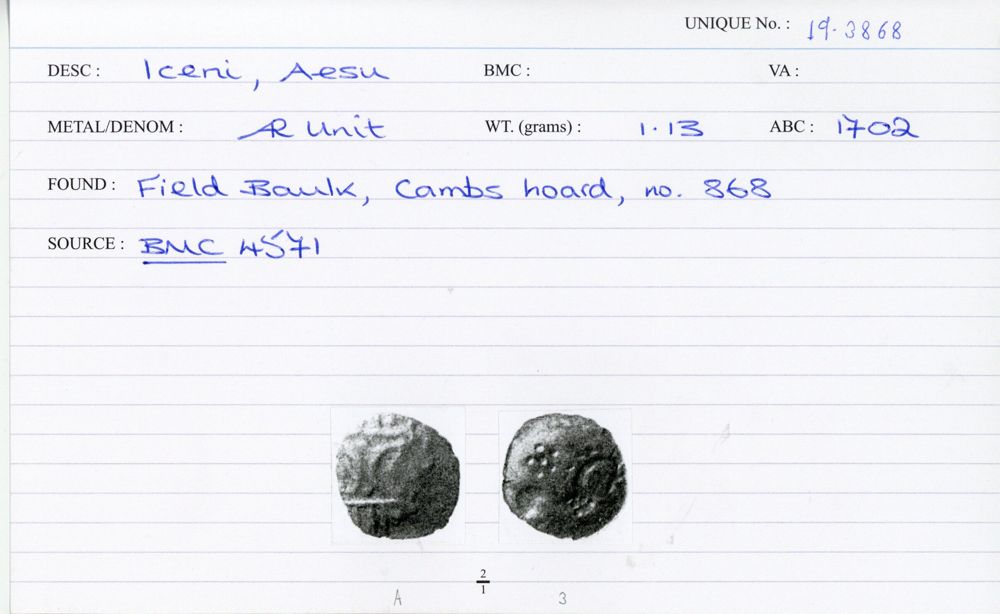 UNIQUE No. : 19.3868
DESC : Iceni, Aesu BMC : VA :
METAL/DENOM : AR Unit WT. (grams) : 1.13 ABC : 1702
FOUND : Field Baulk, Cambs hoard, no. 868
SOURCE : BMC 4571
2
1
A 3